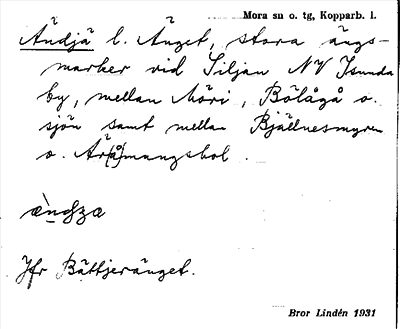 Mora sn o. tg, Kopparb. l.
Ändjä l. Änget, stora ängs-
marker vid Siljan NV Isunda
by, mellan Möri, Bölågå o.
sjön samt mellan Bjällnesmyren
o. Är(å)mangshol.
ændza
Jfr Bättjeränget.
Bror Lindén 1931